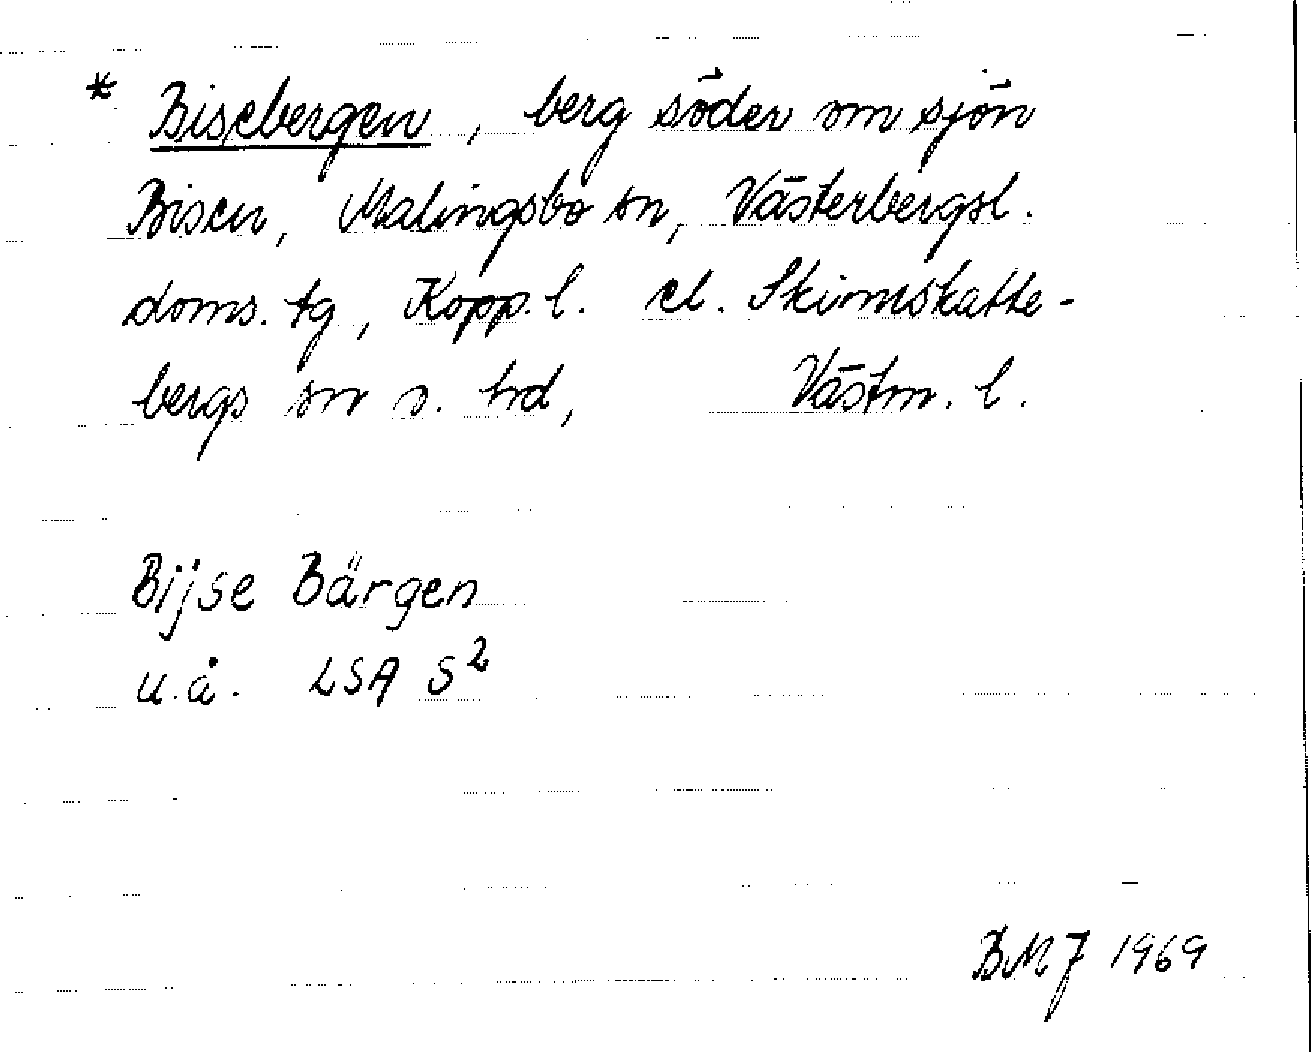 * Bisebergen, berg söder om sjön
Bisen, Malingsbo sn, Västerbergsl.
doms. tg, Kopp. l. el. Skinnskatte-
bergs sn o. hd, Västm. l.
Bijse Bärgen
u.å. LSA S²
BMJ 1969